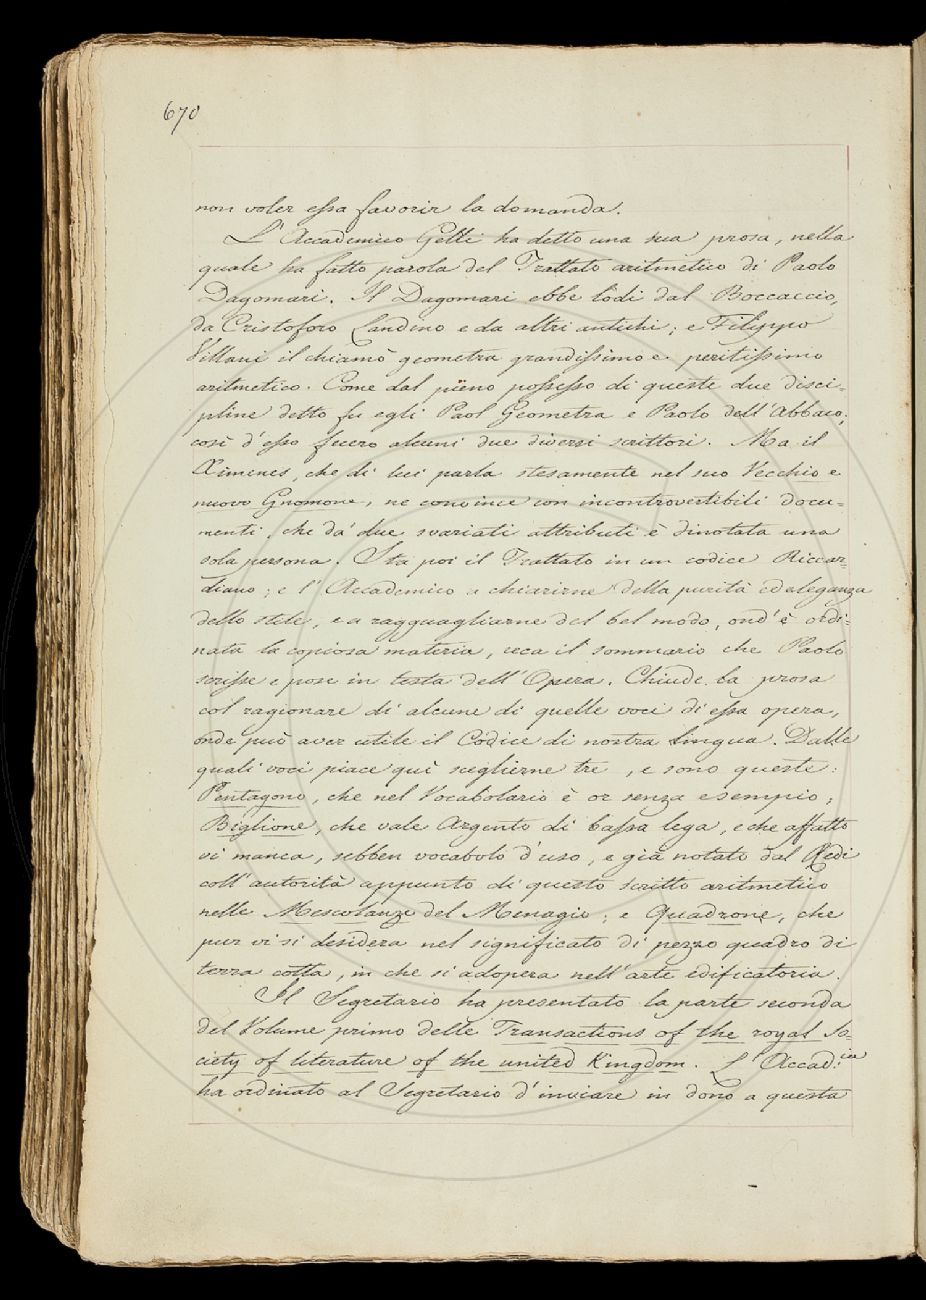 670
non voler essa favorir la domanda.
L'Accademico Gelli ha detto una sua prosa, nella
quale ha fatto parola del Trattato aritmetico di Paolo
Dagomari. Il Dagomari ebbe lodi dal Boccaccio,
da Cristoforo Landino e da altri antichi; e Filippo
Villani il chiamò geometra grandissimo e peritissimo
aritmetico. Come dal pieno possesso di queste due disci=
pline detto fu egli Paol Geometra e Paolo dell'Abbaco,
così d'esso fecero alcuni due diversi scrittori. Ma il
Ximenes, che di lui parla stesamente nel suo Vecchio e
nuovo Gnomone, ne convince con incontrovertibili docu=
menti, che da' due svariati attributi è dinotata una
sola persona. Sta poi il Trattato in un codice Riccar=
diano; e l'Accademico a chiarirne della purità ed eleganza
dello stile, e a ragguagliarne del bel modo, ond'è ordi=
nata la copiosa materia, reca il sommario che Paolo
scrisse e pose in testa dell'Opera. Chiude la prosa
col ragionare di alcune di quelle voci di essa opera,
onde può aver utile il Codice di nostra lingua. Dalle
quali voci piace quì sceglierne tre, e sono queste:
Pentagono, che nel Vocabolario è or senza esempio;
Biglione, che vale Argento di bassa lega, e che affatto
vi manca, sebben vocabolo d'uso, e già notato dal Redi
coll'autorità appunto di questo scritto aritmetico
nelle Mescolanze del Menagio; e Quadrone, che
pur vi si desidera nel significato di pezzo quadro di
terra cotta, in che si adopera nell'arte edificatoria.
Il Segretario ha presentato la parte seconda
del Volume primo delle Transactions of the royal So=
ciety of literature of the united Kingdom. L'Accad:ia
ha ordinato al Segretario d'inviare in dono a questa